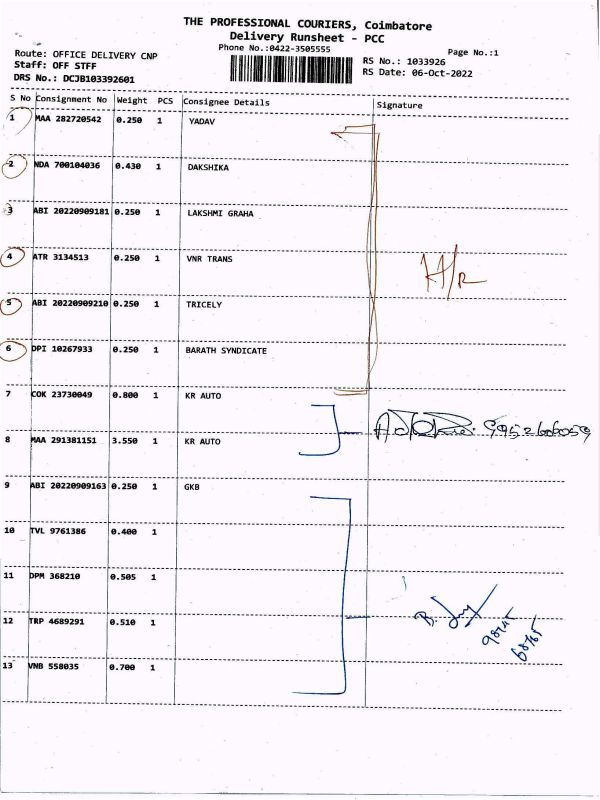 THE PROFESSIONAL COURIERS, Coimbatore
Delivery Runsheet - PCC
Phone No.:0422-3505555
Page No.:1
Route: OFFICE DELIVERY CNP
Staff: OFF STFF
DRS No.: DCJB103392601
RS No.: 1033926
RS Date: 06-Oct-2022
S No Consignment No Weight PCS Consignee Details Signature
1 MAA 282720542 0.250 1 YADAV
2 NDA 700104036 0.430 1 DAKSHIKA
3 ABI 20220909181 0.250 1 LAKSHMI GRAHA
4 ATR 3134513 0.250 1 VNR TRANS
H/R
5 ABI 20220909210 0.250 1 TRICELY
6 DPI 10267933 0.250 1 BARATH SYNDICATE
7 COK 23730049 0.800 1 KR AUTO
8 MAA 291381151 3.550 1 KR AUTO
9 ABI 20220909163 0.250 1 GKB
10 TVL 9761386 0.400 1
11 DPM 368210 0.505 1
12 TRP 4689291 0.510 1
B.
13 VNB 558035 0.700 1